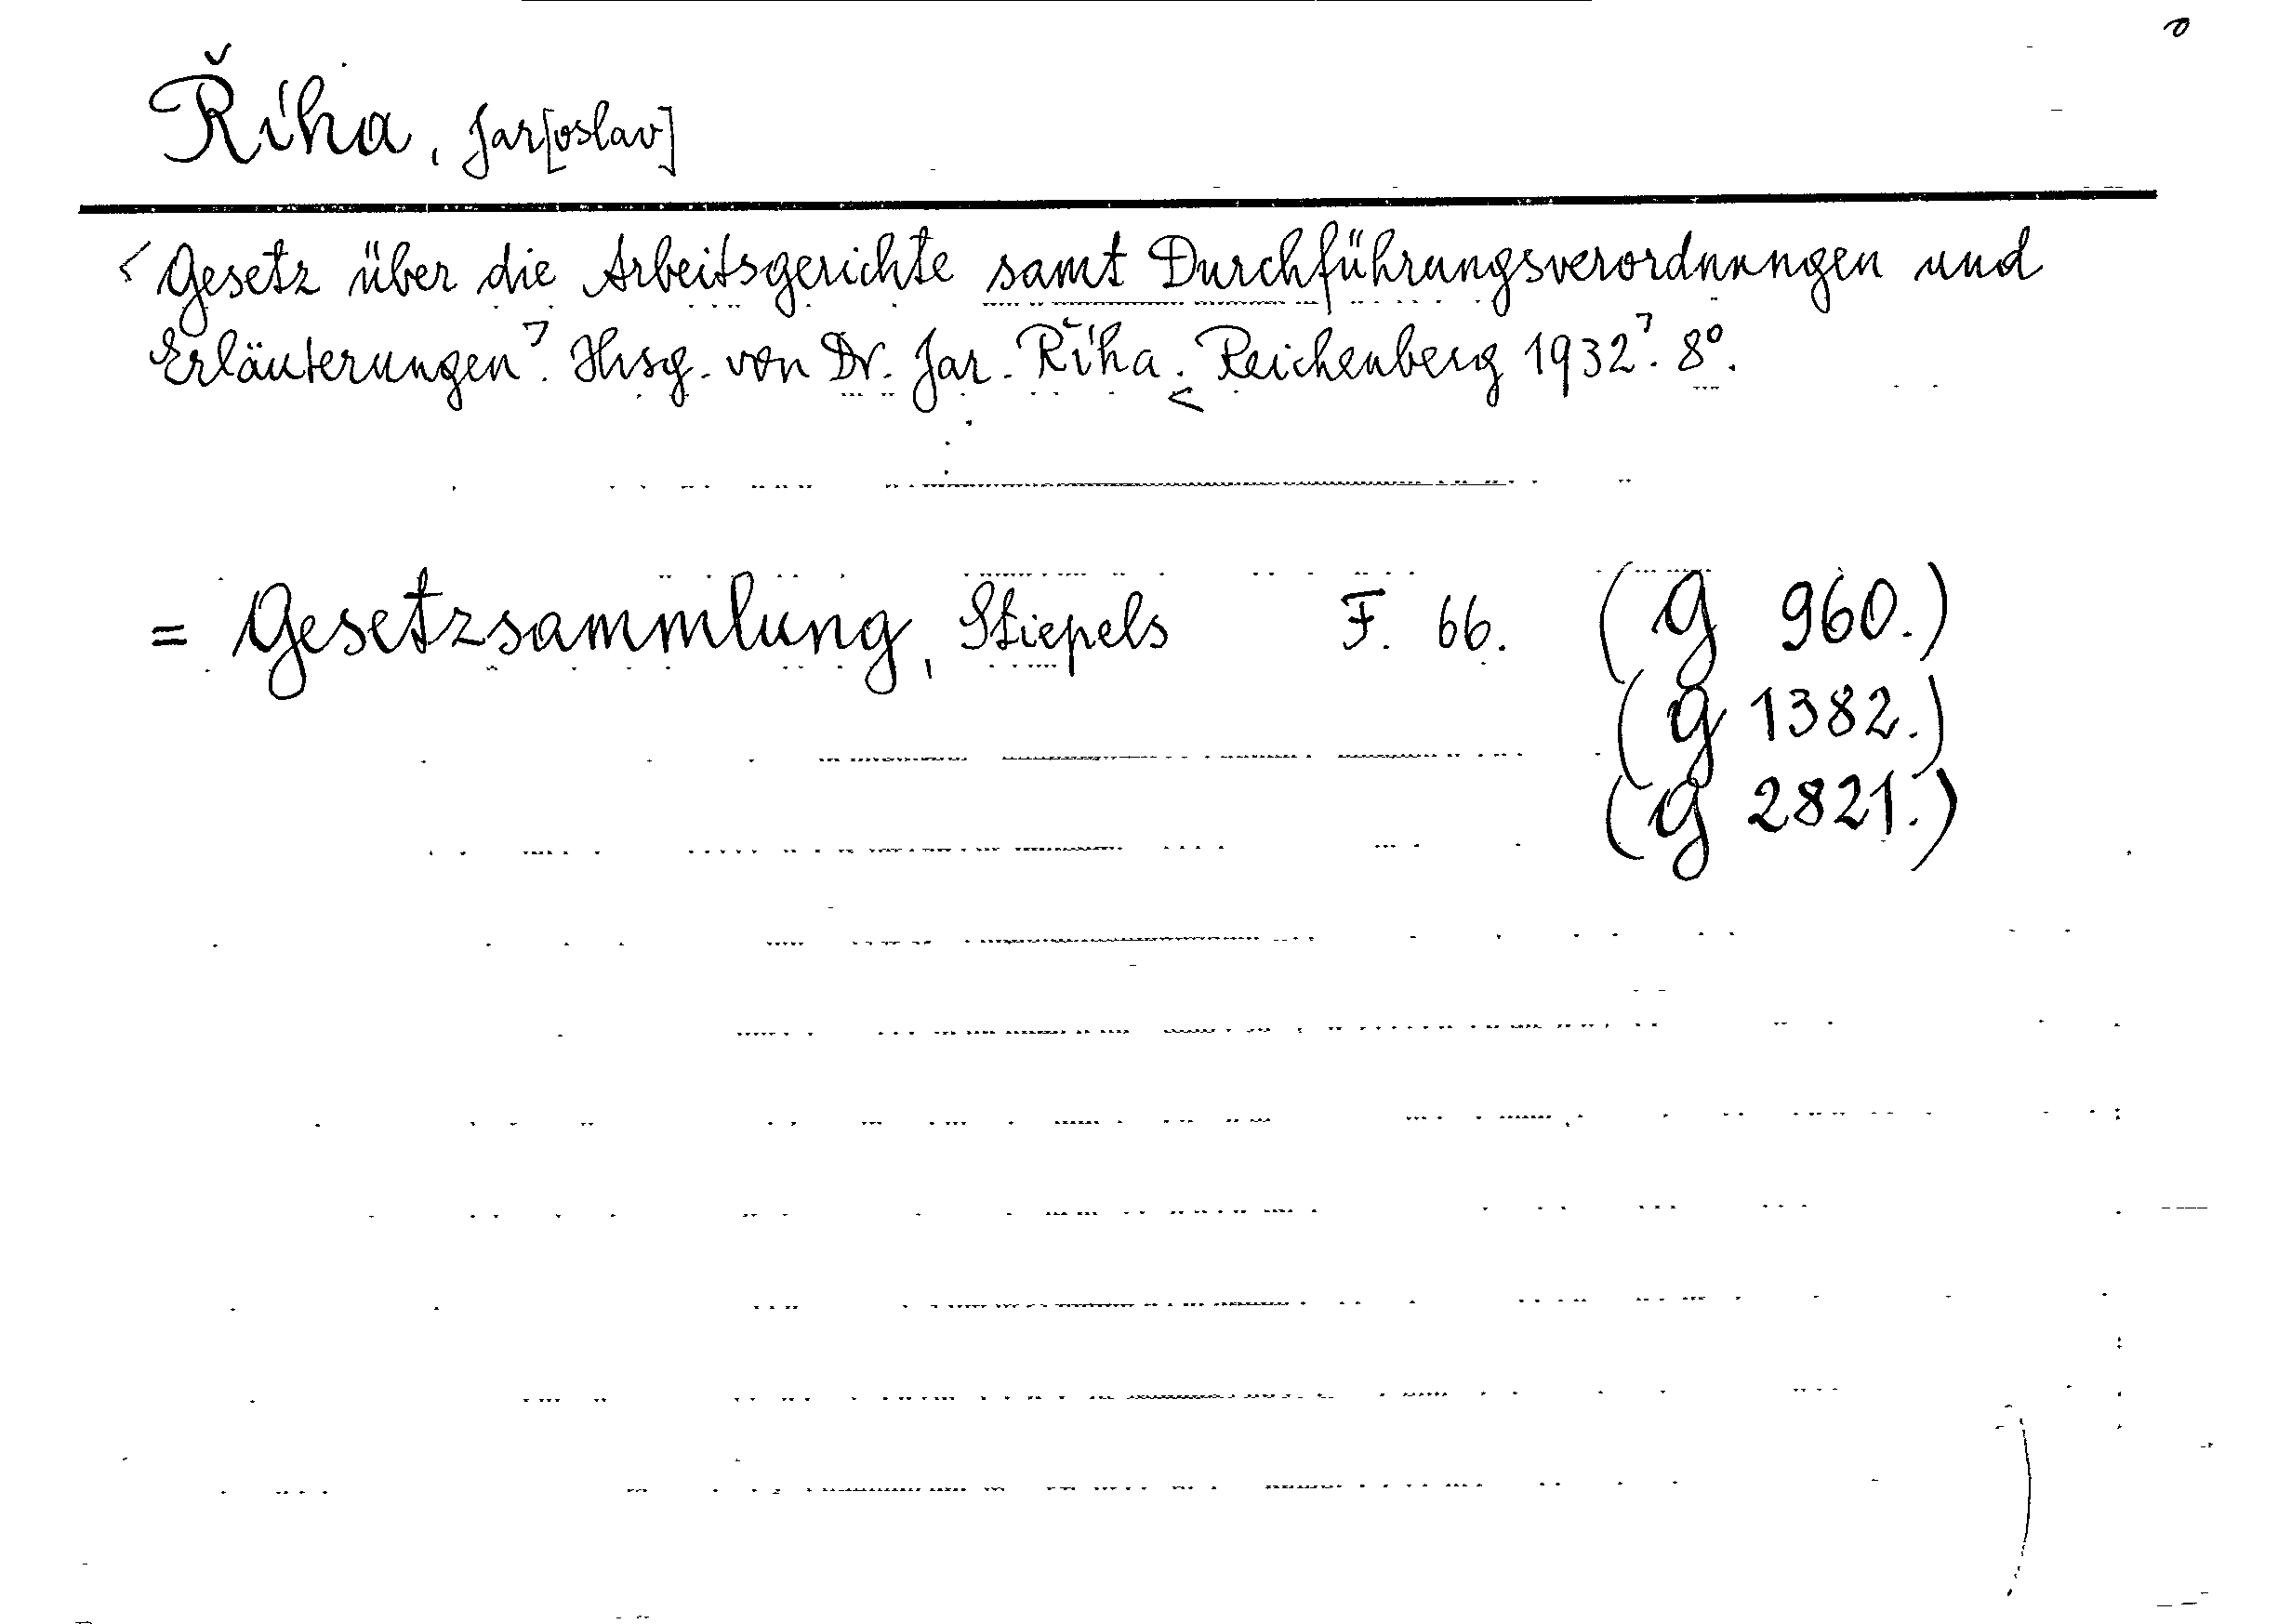 Říha, Jar[oslav]
<Gesetz über die Arbeitsgerichte samt Durchführungsverordnungen und
Erläuterungen>. Hrsg. von Dr. Jar. Říha. <Reichenberg 1932>. 8°.
= Gesetzsammlung, Stiepels F. 66. (G 960.)
(G 1382.)
(G 2821.)